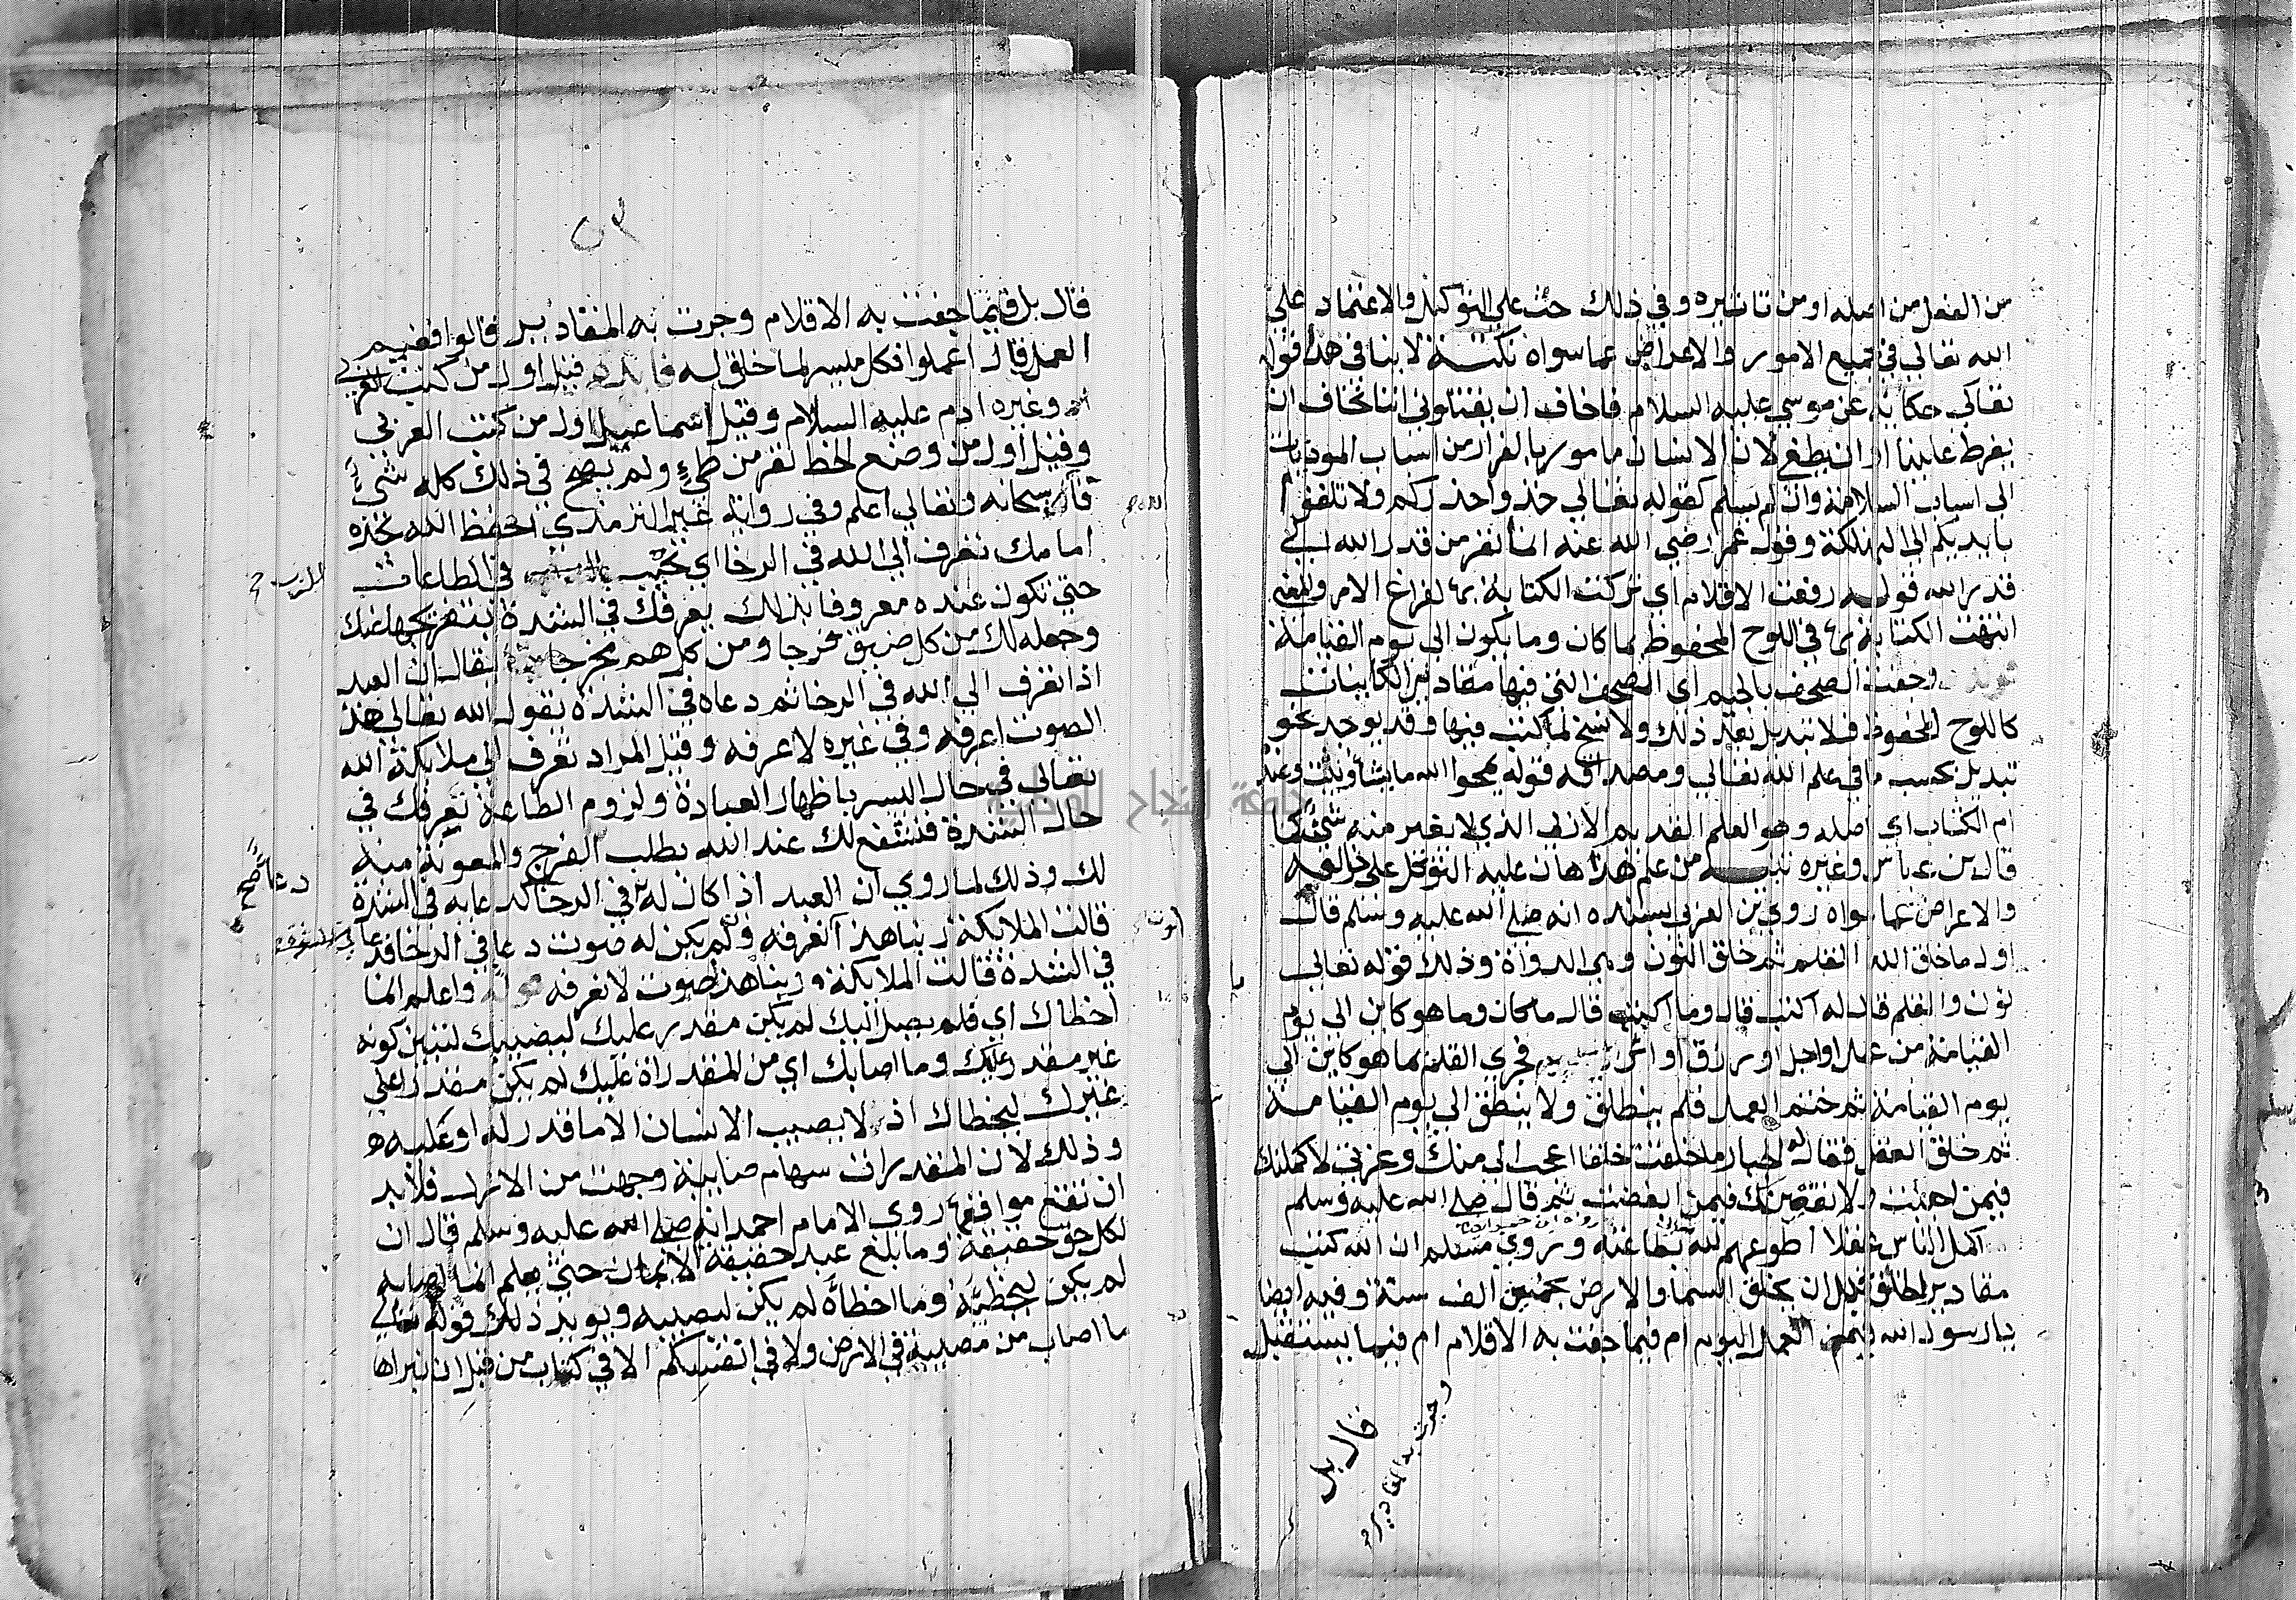 من الفعل من اصله او من تاثيره وفي ذلك حث على التوكيل والاعتماد على
الله تعالى في جميع الامور والاعراض عما سواه نكتة لا ينافي هذا قوله
تعالى حكاية عن موسى عليه السلام فاخاف ان يقتلوني اننا نخاف ان
يفرط علينا او ان يطغى لان الانسان مامور بالفرار من اسباب الموذيات
الى اسباب السلامة وان لم يسلم كقوله تعالى خذوا حذركم ولا تلقوا
بايديكم الى التهلكة وقول عمر رضي الله عنه انما نفر من قدر الله الى
قدر الله قوله رفعت الاقلام اي تركت الكتابة بها لفراغ الامر والمعنى
انتهت الكتابة بها في اللوح المحفوظ بما كان وما يكون الى يوم القيامة
وجفت الصحف بالجيم اي الصحف التي فيها مقادير الكاينات
كاللوح المحفوظ فلا تبديل بعد ذلك ولا نسخ لما كتب فيها وقد يوجد نحو
تبديل بحسب ما في علم الله تعالى ومصداقه قوله يمحوا الله ما يشا ويثبت وعنده
ام الكتاب اي اصله وهو العلم القديم الازلي الذي لا يغير منه شي كما
قال بن عباس وغيره تنبيه من علم هذا هان عليه التوكل على خالقه
والاعراض عما سواه روى بن العربي بسنده انه صلى الله عليه وسلم قال
اول ما خلق الله القلم ثم خلق النون وهي الدواة وذلك قوله تعالى
نون والقلم قال له اكتب قال وما اكتب قال ما كان وما هو كاين الى يوم
القيامة من عمل او اجل او رزق او اثر فجرى القلم بما هو كاين الى
يوم القيامة ثم ختم العمل فلم ينطلق ولا ينطق الى يوم القيامة
ثم خلق العقل فقال له الجبار ما خلقت خلقا اعجب الي منك وعزتي لاكملنك
فيمن احببت ولا نقصنك فيمن ابغضت ثم قال صلى الله عليه وسلم
اكمل الناس عقلا اطوعهم لله بطاعته وروى مسلم ان الله كتب
مقادير الخلق قبل ان يخلق السما والارض بخمسين الف سنة وفيه ايضا
يا رسول الله فيم العمل اليوم ام فيما جفت به الاقلام ام فيما يستقبل
وجرت به المقادير
قال بل
٥٢
قال بل فيما جفت به الاقلام وجرت به المقادير قالوا ففيم
العمل قال اعملوا فكل ميسر لما خلق له فايدة قيل اول من كتب العربي
وغيره ادم عليه السلام وقيل اسماعيل اول من كتب العربي
وقيل اول من وضع الخط نفر من طيء ولم يصح في ذلك كله شيء
قاله سبحانه وتعالى اعلم وفي رواية غير الترمذي احفظ الله تجده
امامك تعرف الى الله في الرخا اي تحبب في الطاعات
حتى تكون عنده معروفا بذلك يعرفك في الشدة بتفريجها عنك
وجعله لك من كل ضيق مخرجا ومن كل هم فرجا يقال ان العبد
اذا تعرف الى الله في الرخا ثم دعاه في الشدة يقول الله تعالى هذا
الصوت اعرفه وفي غيره لا عرفه وقيل المراد تعرف الى ملايكة الله
تعالى في حال اليسر باظهار العبادة ولزوم الطاعة تعرفك في
حال الشدة فتشفع لك عند الله بطلب الفرج والمعونة منه
لك وذلك لما روي ان العبد اذا كان له في الرخا دعا به في الشدة
قالت الملايكة ربنا هذا نعرفه ولم يكن له صوت دعا في الرخا فدعا
في الشدة قالت الملايكة ربنا هذا صوت لا نعرفه قوله واعلم انما
اخطاك اي فلم يصل اليك لم يكن مقدر عليك ليصيبك لتبين كونه
غير مقدر عليك وما اصابك اي من المقدراة عليك لم يكن مقدرا على
غيرك ليخطاك اذ لا يصيب الانسان الا ما قدر له او عليه
وذلك لان المقدرات سهام صايبة وجهت من الازل فلا بد
ان تقع مواقعها روى الامام احمد انه صلى الله عليه وسلم قال ان
لكل حق حقيقة وما بلغ عبد حقيقة الايمان حتى يعلم انما اصابه
لم يكن ليخطيه وما اخطاه لم يكن ليصيبه ويويد ذلك قوله تعالى
ما اصاب من مصيبة في الارض ولا في انفسكم الا في كتاب من قبل ان نبراها
جامعة النجاح الوطنية